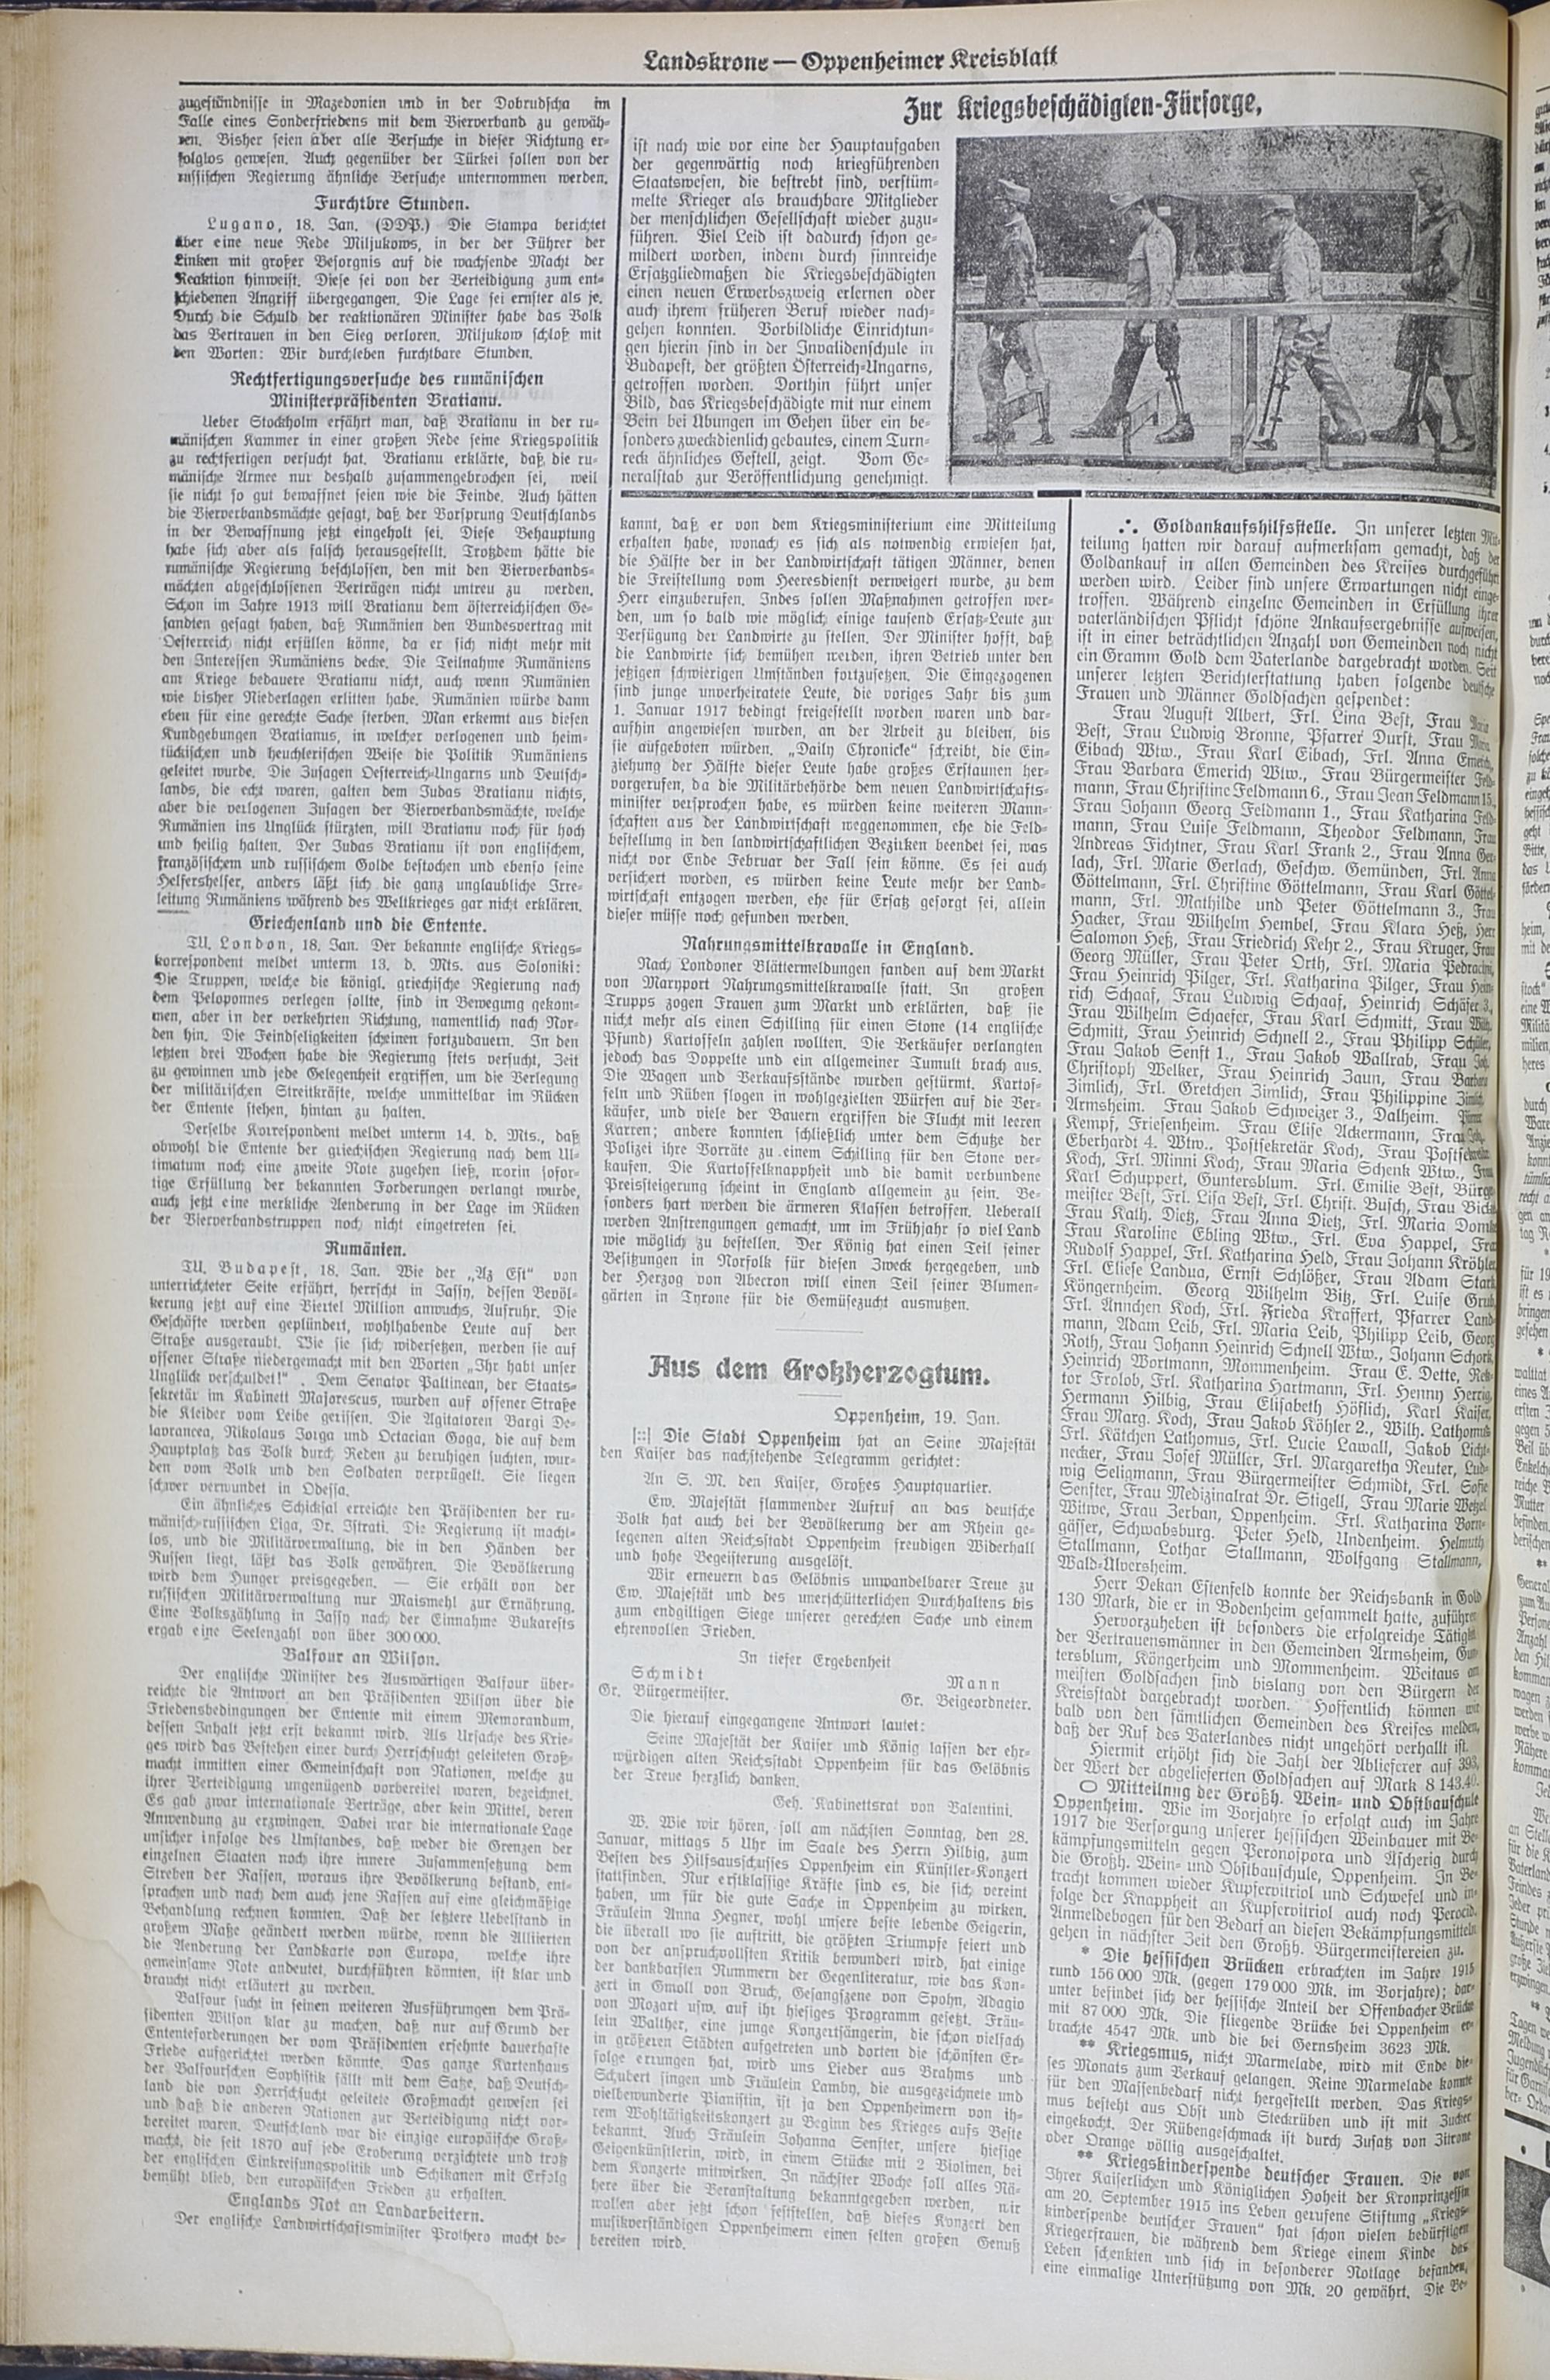 Landskrone — Oppenheimer Kreisblatt
zugeständnisse in Mazedonien und in der Dobrudscha im
Falle eines Sonderfriedens mit dem Vierverband zu gewäh-
ren. Bisher seien aber alle Versuche in dieser Richtung er-
folglos gewesen. Auch gegenüber der Türkei sollen von der
russischen Regierung ähnliche Versuche unternommen werden.
Furchtbre Stunden.
Lugano, 18. Jan. (DDP.) Die Stampa berichtet
über eine neue Rede Miljukows, in der der Führer der
Linken mit großer Besorgnis auf die wachsende Macht der
Reaktion hinweist. Diese sei von der Verteidigung zum ent-
schiedenen Angriff übergegangen. Die Lage sei ernster als je.
Durch die Schuld der reaktionären Minister habe das Volk
das Vertrauen in den Sieg verloren. Miljukow schloß mit
den Worten: Wir durchleben furchtbare Stunden.
Rechtfertigungsversuche des rumänischen
Ministerpräsidenten Bratianu.
Ueber Stockholm erfährt man, daß Bratianu in der ru-
mänischen Kammer in einer großen Rede seine Kriegspolitik
zu rechtfertigen versucht hat. Bratianu erklärte, daß die ru-
mänische Armee nur deshalb zusammengebrochen sei, weil
sie nicht so gut bewaffnet seien wie die Feinde. Auch hätten
die Vierverbandsmächte gesagt, daß der Vorsprung Deutschlands
in der Bewaffnung jetzt eingeholt sei. Diese Behauptung
habe sich aber als falsch herausgestellt. Trotzdem hätte die
rumänische Regierung beschlossen, den mit den Vierverbands-
mächten abgeschlossenen Verträgen nicht untreu zu werden.
Schon im Jahre 1913 will Bratianu dem österreichischen Ge-
sandten gesagt haben, daß Rumänien den Bundesvertrag mit
Oesterreich nicht erfüllen könne, da er sich nicht mehr mit
den Interessen Rumäniens decke. Die Teilnahme Rumäniens
am Kriege bedauere Bratianu nicht, auch wenn Rumänien
wie bisher Niederlagen erlitten habe. Rumänien würde dann
eben für eine gerechte Sache sterben. Man erkennt aus diesen
Kundgebungen Bratianus, in welcher verlogenen und heim-
tückischen und heuchlerischen Weise die Politik Rumäniens
geleitet wurde. Die Zusagen Oesterreich-Ungarns und Deutsch-
lands, die echt waren, galten dem Judas Bratianu nichts,
aber die verlogenen Zusagen der Vierverbandsmächte, welche
Rumänien ins Unglück stürzten, will Bratianu noch für hoch
und heilig halten. Der Judas Bratianu ist von englischem,
französischem und russischem Golde bestochen und ebenso seine
Helfershelfer, anders läßt sich die ganz unglaubliche Irre-
leitung Rumäniens während des Weltkrieges gar nicht erklären.
Griechenland und die Entente.
TU. London, 18. Jan. Der bekannte englische Kriegs-
korrespondent meldet unterm 13. d. Mts. aus Soloniki:
Die Truppen, welche die königl. griechische Regierung nach
dem Peloponnes verlegen sollte, sind in Bewegung gekom-
men, aber in der verkehrten Richtung, namentlich nach Nor-
den hin. Die Feindseligkeiten scheinen fortzudauern. In den
letzten drei Wochen habe die Regierung stets versucht, Zeit
zu gewinnen und jede Gelegenheit ergriffen, um die Verlegung
der militärischen Streitkräfte, welche unmittelbar im Rücken
der Entente stehen, hintan zu halten.
Derselbe Korrespondent meldet unterm 14. d. Mts., daß
obwohl die Entente der griechischen Regierung nach dem Ul-
timatum noch eine zweite Note zugehen ließ, worin sofor-
tige Erfüllung der bekannten Forderungen verlangt wurde,
auch jetzt eine merkliche Aenderung in der Lage im Rücken
der Vierverbandstruppen noch nicht eingetreten sei.
Rumänien.
TU. Budapest, 18. Jan. Wie der „Az Est“ von
unterrichteter Seite erfährt, herrscht in Jassy, dessen Bevöl-
kerung jetzt auf eine Viertel Million anwuchs, Aufruhr. Die
Geschäfte werden geplündert, wohlhabende Leute auf der
Straße ausgeraubt. Wie sie sich widersetzen, werden sie auf
offener Straße niedergemacht mit den Worten „Ihr habt unser
Unglück verschuldet!“ . Dem Senator Paltinean, der Staats-
sekretär im Kabinett Majorescus, wurden auf offener Straße
die Kleider vom Leibe gerissen. Die Agitatoren Bargi De-
lavrancea, Nikolaus Jorga und Octacian Goga, die auf dem
Hauptplatz das Volk durch Reden zu beruhigen suchten, wur-
den vom Volk und den Soldaten verprügelt. Sie liegen
schwer verwundet in Odessa.
Ein ähnliches Schicksal erreichte den Präsidenten der ru-
mänisch-russischen Liga, Dr. Istrati. Die Regierung ist macht-
los, und die Militärverwaltung, die in den Händen der
Russen liegt, läßt das Volk gewähren. Die Bevölkerung
wird dem Hunger preisgegeben. — Sie erhält von der
russischen Militärverwaltung nur Maismehl zur Ernährung.
Eine Volkszählung in Jassy nach der Einnahme Bukarests
ergab eine Seelenzahl von über 300 000.
Balfour an Wilson.
Der englische Minister des Auswärtigen Balfour über-
reichte die Antwort an den Präsidenten Wilson über die
Friedensbedingungen der Entente mit einem Memorandum,
dessen Inhalt jetzt erst bekannt wird. Als Ursache des Krie-
ges wird das Bestehen einer durch Herrschsucht geleiteten Groß-
macht inmitten einer Gemeinschaft von Nationen, welche zu
ihrer Verteidigung ungenügend vorbereitet waren, bezeichnet.
Es gab zwar internationale Verträge, aber kein Mittel, deren
Anwendung zu erzwingen. Dabei war die internationale Lage
unsicher infolge des Umstandes, daß weder die Grenzen der
einzelnen Staaten noch ihre innere Zusammensetzung dem
Streben der Rassen, woraus ihre Bevölkerung bestand, ent-
sprachen und nach dem auch jene Rassen auf eine gleichmäßige
Behandlung rechnen konnten. Daß der letztere Uebelstand in
großem Maße geändert werden würde, wenn die Alliierten
die Aenderung der Landkarte von Europa, welche ihre
gemeinsame Note andeutet, durchführen könnten, ist klar und
braucht nicht erläutert zu werden.
Balfour sucht in seinen weiteren Ausführungen dem Prä-
sidenten Wilson klar zu machen, daß nur auf Grund der
Ententeforderungen der vom Präsidenten ersehnte dauerhafte
Friede aufgerichtet werden könnte. Das ganze Kartenhaus
der Balfourschen Sophistik fällt mit dem Satze, daß Deutsch-
land die von Herrschsucht geleitete Großmacht gewesen sei
und daß die anderen Nationen zur Verteidigung nicht vor-
bereitet waren. Deutschland war die einzige europäische Groß-
macht, die seit 1870 auf jede Eroberung verzichtete und trotz
der englischen Einkreisungspolitik und Schikanen mit Erfolg
bemüht blieb, den europäischen Frieden zu erhalten.
Englands Not an Landarbeitern.
Der englische Landwirtschaftsminister Prothero macht be-
Zur Kriegsbeschädigten-Fürsorge,
ist nach wie vor eine der Hauptaufgaben
der gegenwärtig noch kriegführenden
Staatswesen, die bestrebt sind, verstüm-
melte Krieger als brauchbare Mitglieder
der menschlichen Gesellschaft wieder zuzu-
führen. Viel Leid ist dadurch schon ge-
mildert worden, indem durch sinnreiche
Ersatzgliedmaßen die Kriegsbeschädigten
einen neuen Erwerbszweig erlernen oder
auch ihrem früheren Beruf wieder nach-
gehen konnten. Vorbildliche Einrichtun-
gen hierin sind in der Invalidenschule in
Budapest, der größten Österreich-Ungarns,
getroffen worden. Dorthin führt unser
Bild, das Kriegsbeschädigte mit nur einem
Bein bei Übungen im Gehen über ein be-
sonders zweckdienlich gebautes, einem Turn-
reck ähnliches Gestell, zeigt. Vom Ge-
neralstab zur Veröffentlichung genehmigt.
kannt, daß er von dem Kriegsministerium eine Mitteilung
erhalten habe, wonach es sich als notwendig erwiesen hat,
die Hälfte der in der Landwirtschaft tätigen Männer, denen
die Freistellung vom Heeresdienst verweigert wurde, zu dem
Herr einzuberufen. Indes sollen Maßnahmen getroffen wer-
den, um so bald wie möglich einige tausend Ersatz-Leute zur
Verfügung der Landwirte zu stellen. Der Minister hofft, daß
die Landwirte sich bemühen werden, ihren Betrieb unter den
jetzigen schwierigen Umständen fortzusetzen. Die Eingezogenen
sind junge unverheiratete Leute, die voriges Jahr bis zum
1. Januar 1917 bedingt freigestellt worden waren und dar-
aufhin angewiesen wurden, an der Arbeit zu bleiben, bis
sie aufgeboten würden. „Daily Chronicle“ schreibt, die Ein-
ziehung der Hälfte dieser Leute habe großes Erstaunen her-
vorgerufen, da die Militärbehörde dem neuen Landwirtschafts-
minister versprochen habe, es würden keine weiteren Mann-
schaften aus der Landwirtschaft weggenommen, ehe die Feld-
bestellung in den landwirtschaftlichen Bezirken beendet sei, was
nicht vor Ende Februar der Fall sein könne. Es sei auch
versichert worden, es würden keine Leute mehr der Land-
wirtschaft entzogen werden, ehe für Ersatz gesorgt sei, allein
dieser müsse noch gefunden werden.
Nahrungsmittelkravalle in England.
Nach Londoner Blättermeldungen fanden auf dem Markt
von Maryport Nahrungsmittelkrawalle statt. In großen
Trupps zogen Frauen zum Markt und erklärten, daß sie
nicht mehr als einen Schilling für einen Stone (14 englische
Pfund) Kartoffeln zahlen wollten. Die Verkäufer verlangten
jedoch das Doppelte und ein allgemeiner Tumult brach aus.
Die Wagen und Verkaufsstände wurden gestürmt. Kartof-
feln und Rüben flogen in wohlgezielten Würfen auf die Ver-
käufer, und viele der Bauern ergriffen die Flucht mit leeren
Karren; andere konnten schließlich unter dem Schutze der
Polizei ihre Vorräte zu einem Schilling für den Stone ver-
kaufen. Die Kartoffelknappheit und die damit verbundene
Preissteigerung scheint in England allgemein zu sein. Be-
sonders hart werden die ärmeren Klassen betroffen. Ueberall
werden Anstrengungen gemacht, um im Frühjahr so viel Land
wie möglich zu bestellen. Der König hat einen Teil seiner
Besitzungen in Norfolk für diesen Zweck hergegeben, und
der Herzog von Abecron will einen Teil seiner Blumen-
gärten in Tyrone für die Gemüsezucht ausnutzen.
Aus dem Großherzogtum.
Oppenheim, 19. Jan.
[::] Die Stadt Oppenheim hat an Seine Majestät
den Kaiser das nachstehende Telegramm gerichtet:
An S. M. den Kaiser, Großes Hauptquartier.
Ew. Majestät flammender Aufruf an das deutsche
Volk hat auch bei der Bevölkerung der am Rhein ge-
legenen alten Reichsstadt Oppenheim freudigen Widerhall
und hohe Begeisterung ausgelöst.
Wir erneuern das Gelöbnis unwandelbarer Treue zu
Ew. Majestät und des unerschütterlichen Durchhaltens bis
zum endgiltigen Siege unserer gerechten Sache und einem
ehrenvollen Frieden.
In tiefer Ergebenheit
Schmidt Mann
Gr. Bürgermeister. Gr. Beigeordneter.
Die hierauf eingegangene Antwort lautet:
Seine Majestät der Kaiser und König lassen der ehr-
würdigen alten Reichsstadt Oppenheim für das Gelöbnis
der Treue herzlich danken.
Geh. Kabinettsrat von Valentini.
W. Wie wir hören, soll am nächsten Sonntag, den 28.
Januar, mittags 5 Uhr im Saale des Herrn Hilbig, zum
Besten des Hilfsausschusses Oppenheim ein Künstler-Konzert
stattfinden. Nur erstklassige Kräfte sind es, die sich vereint
haben, um für die gute Sache in Oppenheim zu wirken.
Fräulein Anna Hegner, wohl unsere beste lebende Geigerin,
die überall wo sie auftritt, die größten Triumpfe feiert und
von der anspruchvollsten Kritik bewundert wird, hat einige
der dankbarsten Nummern der Gegenliteratur, wie das Kon-
zert in Gmoll von Bruch, Gesangszene von Spohn, Adagio
von Mozart usw. auf ihr hiesiges Programm gesetzt. Fräu-
lein Walther, eine junge Konzertsängerin, die schon vielfach
in größeren Städten aufgetreten und dorten die schönsten Er-
folge errungen hat, wird uns Lieder aus Brahms und
Schubert singen und Fräulein Lamby, die ausgezeichnete und
vielbewunderte Pianistin, ist ja den Oppenheimern von ih-
rem Wohltätigkeitskonzert zu Beginn des Krieges aufs Beste
bekannt. Auch Fräulein Johanna Senfter, unsere hiesige
Geigenkünstlerin, wird, in einem Stücke mit 2 Violinen, bei
dem Konzerte mitwirken. In nächster Woche soll alles Nä-
here über die Veranstaltung bekanntgegeben werden, wir
wollen aber jetzt schon feststellen, daß dieses Konzert den
musikverständigen Oppenheimern einen selten großen Genuß
bereiten wird.
∴ Goldankaufshilfsstelle. In unserer letzten Mit-
teilung hatten wir darauf aufmerksam gemacht, daß der
Goldankauf in allen Gemeinden des Kreises durchgeführt
werden wird. Leider sind unsere Erwartungen nicht einge-
troffen. Während einzelne Gemeinden in Erfüllung ihrer
vaterländischen Pflicht schöne Ankaufsergebnisse aufweisen,
ist in einer beträchtlichen Anzahl von Gemeinden noch nicht
ein Gramm Gold dem Vaterlande dargebracht worden. Seit
unserer letzten Berichterstattung haben folgende deutsche
Frauen und Männer Goldsachen gespendet:
Frau August Albert, Frl. Lina Best, Frau Maria
Best, Frau Ludwig Bronne, Pfarrer Durst, Frau
Eibach Wtw., Frau Karl Eibach, Frl. Anna Emerich,
Frau Barbara Emerich Wtw., Frau Bürgermeister Feld-
mann, Frau Christine Feldmann 6., Frau Jean Feldmann 15.,
Frau Johann Georg Feldmann 1., Frau Katharina Feld-
mann, Frau Luise Feldmann, Theodor Feldmann, Frau
Andreas Fichtner, Frau Karl Frank 2., Frau Anna Ger-
lach, Frl. Marie Gerlach, Geschw. Gemünden, Frl. Anna
Göttelmann, Frl. Christine Göttelmann, Frau Karl Göttel-
mann, Frl. Mathilde und Peter Göttelmann 3., Frau
Hacker, Frau Wilhelm Hembel, Frau Klara Heß, Herr
Salomon Heß, Frau Friedrich Kehr 2., Frau Kruger, Frau
Georg Müller, Frau Peter Orth, Frl. Maria Pedrachi,
Frau Heinrich Pilger, Frl. Katharina Pilger, Frau Hein-
rich Schaaf, Frau Ludwig Schaaf, Heinrich Schäfer 3.,
Frau Wilhelm Schaefer, Frau Karl Schmitt, Frau Wilh.
Schmitt, Frau Heinrich Schnell 2., Frau Philipp Schüler,
Frau Jakob Senft 1., Frau Jakob Wallrab, Frau Joh.
Christoph Welker, Frau Heinrich Zaun, Frau Barbara
Zimlich, Frl. Gretchen Zimlich, Frau Philippine Zimlich,
Armsheim. Frau Jakob Schweizer 3., Dalheim. Pfarrer
Kempf, Friesenheim. Frau Elise Ackermann, Frau Joh.
Eberhardt 4. Wtw., Postsekretär Koch, Frau Postsekretär
Koch, Frl. Minni Koch, Frau Maria Schenk Wtw., Frau
Karl Schuppert, Guntersblum. Frl. Emilie Best, Bürger-
meister Best, Frl. Lisa Best, Frl. Christ. Busch, Frau
Frau Kath. Dietz, Frau Anna Dietz, Frl. Maria
Frau Karoline Ebling Wtw., Frl. Eva Happel, Frau
Rudolf Happel, Frl. Katharina Held, Frau Johann Kröhler,
Frl. Eliese Landua, Ernst Schlößer, Frau Adam Stark,
Köngernheim. Georg Wilhelm Bitz, Frl. Luise Grub,
Frl. Annchen Koch, Frl. Frieda Kraffert, Pfarrer Land-
mann, Adam Leib, Frl. Maria Leib, Philipp Leib, Georg
Roth, Frau Johann Heinrich Schnell Wtw., Johann Schork,
Heinrich Wortmann, Mommenheim. Frau E. Dette, Rek-
tor Frolob, Frl. Katharina Hartmann, Frl. Henny Herrig,
Hermann Hilbig, Frau Elisabeth Höflich, Karl Kaiser,
Frau Marg. Koch, Frau Jakob Köhler 2., Wilh. Lathomus
Frl. Kätchen Lathomus, Frl. Lucie Lawall, Jakob Licht-
necker, Frau Josef Müller, Frl. Margaretha Reuter, Lud-
wig Seligmann, Frau Bürgermeister Schmidt, Frl. Sofie
Senfter, Frau Medizinalrat Dr. Stigell, Frau Marie Wetzel
Witwe, Frau Zerban, Oppenheim. Frl. Katharina Born-
gässer, Schwabsburg. Peter Held, Undenheim. Helmuth
Stallmann, Lothar Stallmann, Wolfgang Stallmann,
Wald-Ulversheim.
Herr Dekan Estenfeld konnte der Reichsbank in Gold
130 Mark, die er in Bodenheim gesammelt hatte, zuführen
Hervorzuheben ist besonders die erfolgreiche Tätigkeit
der Vertrauensmänner in den Gemeinden Armsheim, Gun-
tersblum, Köngerheim und Mommenheim. Weitaus am
meisten Goldsachen sind bislang von den Bürgern der
Kreisstadt dargebracht worden. Hoffentlich können wir
bald von den sämtlichen Gemeinden des Kreises melden,
daß der Ruf des Vaterlandes nicht ungehört verhallt ist.
Hiermit erhöht sich die Zahl der Ablieferer auf 393,
der Wert der abgelieferten Goldsachen auf Mark 8 143.40.
O Mitteilung der Großh. Wein- und Obstbauschule
Oppenheim. Wie im Vorjahre so erfolgt auch im Jahre
1917 die Versorgung unserer hessischen Weinbauer mit Be-
kämpfungsmitteln gegen Peronospora und Ascherig durch
die Großh. Wein- und Obstbauschule, Oppenheim. In Be-
tracht kommen wieder Kupfervitriol und Schwefel und in-
folge der Knappheit an Kupfervitriol auch noch Perocid.
Anmeldebogen für den Bedarf an diesen Bekämpfungsmitteln
gehen in nächster Zeit den Großh. Bürgermeistereien zu.
* Die hessischen Brücken erbrachten im Jahre 1915
rund 156 000 Mk. (gegen 179 000 Mk. im Vorjahre); dar-
unter befindet sich der hessische Anteil der Offenbacher Brücke
mit 87 000 Mk. Die fliegende Brücke bei Oppenheim er-
brachte 4547 Mk. und die bei Gernsheim 3623 Mk.
** Kriegsmus, nicht Marmelade, wird mit Ende die-
ses Monats zum Verkauf gelangen. Reine Marmelade konnte
für den Massenbedarf nicht hergestellt werden. Das Kriegs-
mus besteht aus Obst und Steckrüben und ist mit Zucker
eingekocht. Der Rübengeschmack ist durch Zusatz von Zitrone
oder Orange völlig ausgeschaltet.
** Kriegskinderspende deutscher Frauen. Die von
Ihrer Kaiserlichen und Königlichen Hoheit der Kronprinzessin
am 20. September 1915 ins Leben gerufene Stiftung „Kriegs-
kinderspende deutscher Frauen“ hat schon vielen bedürftigen
Kriegerfrauen, die während dem Kriege einem Kinde das
Leben schenkten und sich in besonderer Notlage befanden,
eine einmalige Unterstützung von Mk. 20 gewährt. Die Be-